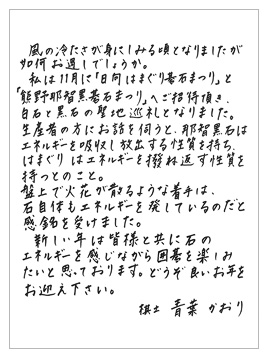 風の冷たさが身にしみる頃となりましたが
如何お過しでしょうか。
私は11月に「日向はまぐり碁石まつり」と
「熊野那智黒碁石まつり」へご招待頂き、
白石と黒石の聖地巡礼となりました。
生産者の方にお話を伺うと、那智黒石は
エネルギーを吸収し放出する性質を持ち、
はまぐりはエネルギーを撥ね返す性質を
持つとのこと。
盤上で火花が散るような着手は、
石自体もエネルギーを発しているのだと
感銘を受けました。
新しい年は皆様と共に石の
エネルギーを感じながら囲碁を楽しみ
たいと思っております。どうぞ良いお年を
お迎え下さい。
棋士 青葉かおり